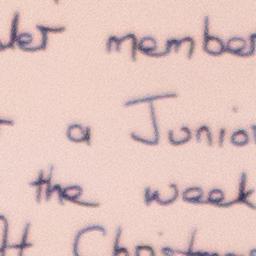 member
a Junior
the week
At Christmas